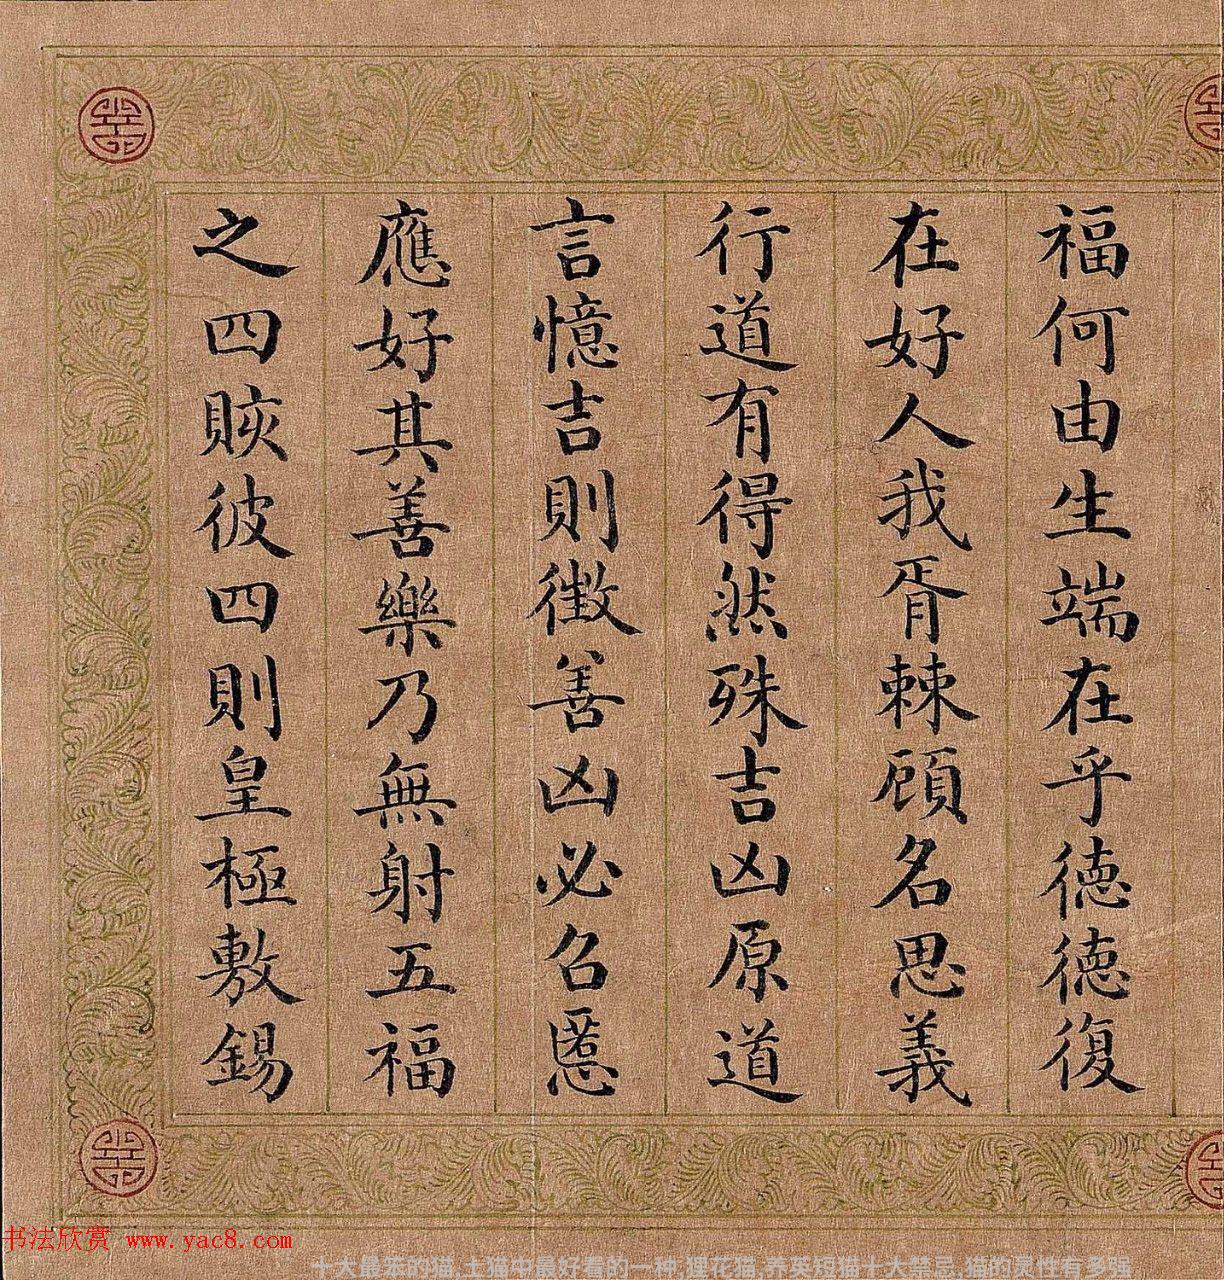 福何由生端在乎德德復
在好人我胥棘顧名思義
行道有得然殊吉凶原道
言憶吉則徵善凶必召慝
應好其善樂乃無射五福
之四賅彼四則皇極敷錫
书法欣赏 www.yac8.com
十大最笨的猫,土猫中最好看的一种,狸花猫,养英短猫十大禁忌,猫的灵性有多强